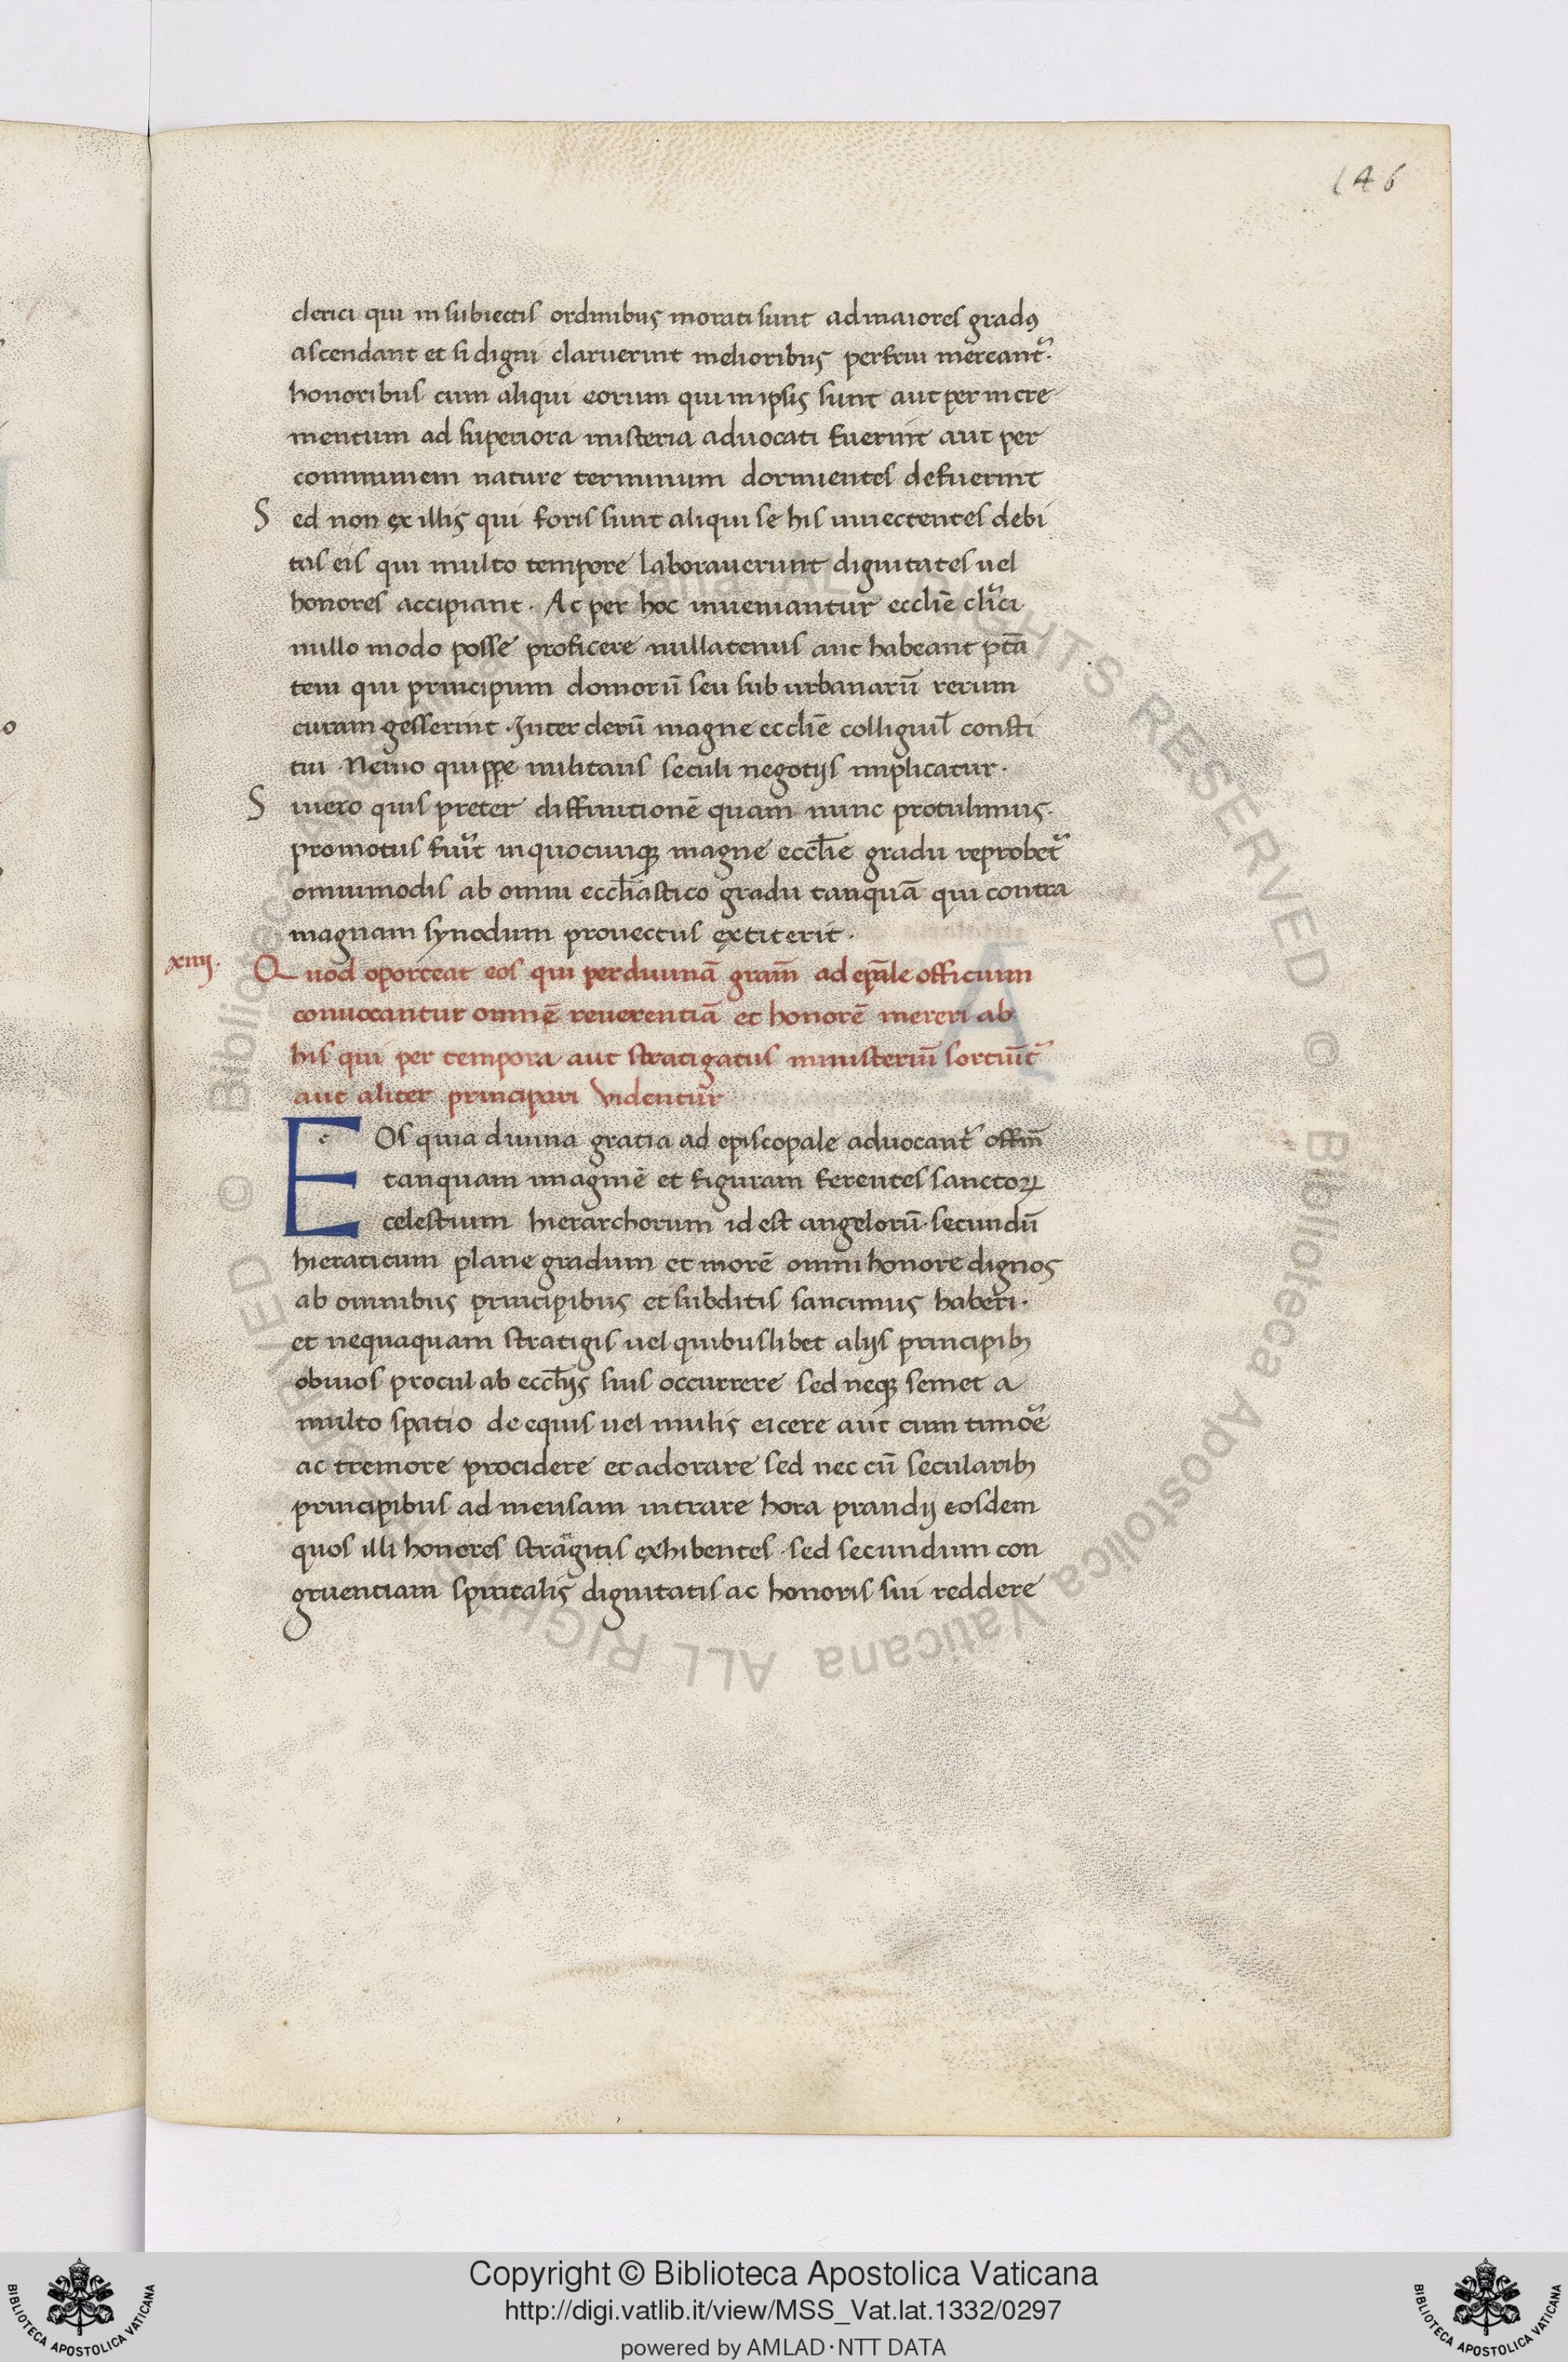 146
clerici qui in subiectis ordinibus morati sunt ad maiores gradꝰ
ascendant et si digni claruerint melioribus perfrui mereant᷑.
honoribus cum aliqui eorum qui in ipsis sunt aut per incre
mentum ad superiora misteria aduocati fuerint aut per
communem nature terminum dormientes defuerint
Sed non ex illis qui foris sunt aliqui se his inuectentes debi
tas eis qui multo tempore laborauerunt dignitates uel
honores accipiant. Ac per hoc inueniantur ecclīe cl̄ici
nullo modo posse proficere nullatenus aut habeant ptā
tem qui principum domorū seu suburbanarū rerum
curam gesserint. Inter derū magne ecclīe colliguīt consti
tui. Nemo quippe militans seculi negotijs implicatur.
Si uero quis preter diffinitionē quam nunc protulimus.
promotus fuīt in quocunqꝫ magne eccl̄ie gradu reprobet᷑
omnimodis ab omni eccl̄iastico gradu tanquā qui contra
magnam synodum prouectus extiterit.
xiiij. Quod oporteat eos qui per diuinā gram̄ ad ep̄ale officium
conuocantur omnē reuerentiā et honorē mereri ab
his qui per tempora aut stratigatus ministeriū sortiūt᷑
aut aliter principari videntur
EOs quia diuina gratia ad episcopale aduocant᷑ offm̄
tanquam imaginē et figuram ferentes sanctoꝝ
celestium hierarchorum id est angelorū. secundū
hieraticum plane gradum et morē omni honore dignos
ab omnibus principibus et subditis sancimus haberi.
et nequaquam stratigis uel quibuslibet alijs principibꝫ
obuios procul ab eccl̄ijs suis occurrere sed neqꝫ semet a
multo spatio de equis uel mulis eicere aut cum timōe
ac tremore procidere et adorare sed nec cū secularibꝫ
principibus ad mensam intrare hora prandij eosdem
quos illi honores stragitis exhibentes. sed secundum con
gruentiam spiritalis dignitatis ac honoris sui reddere
Copyright © Biblioteca Apostolica Vaticana
http://digi.vatlib.it/view/MSS_Vat.lat.1332/0297
powered by AMLAD·NTT DATA